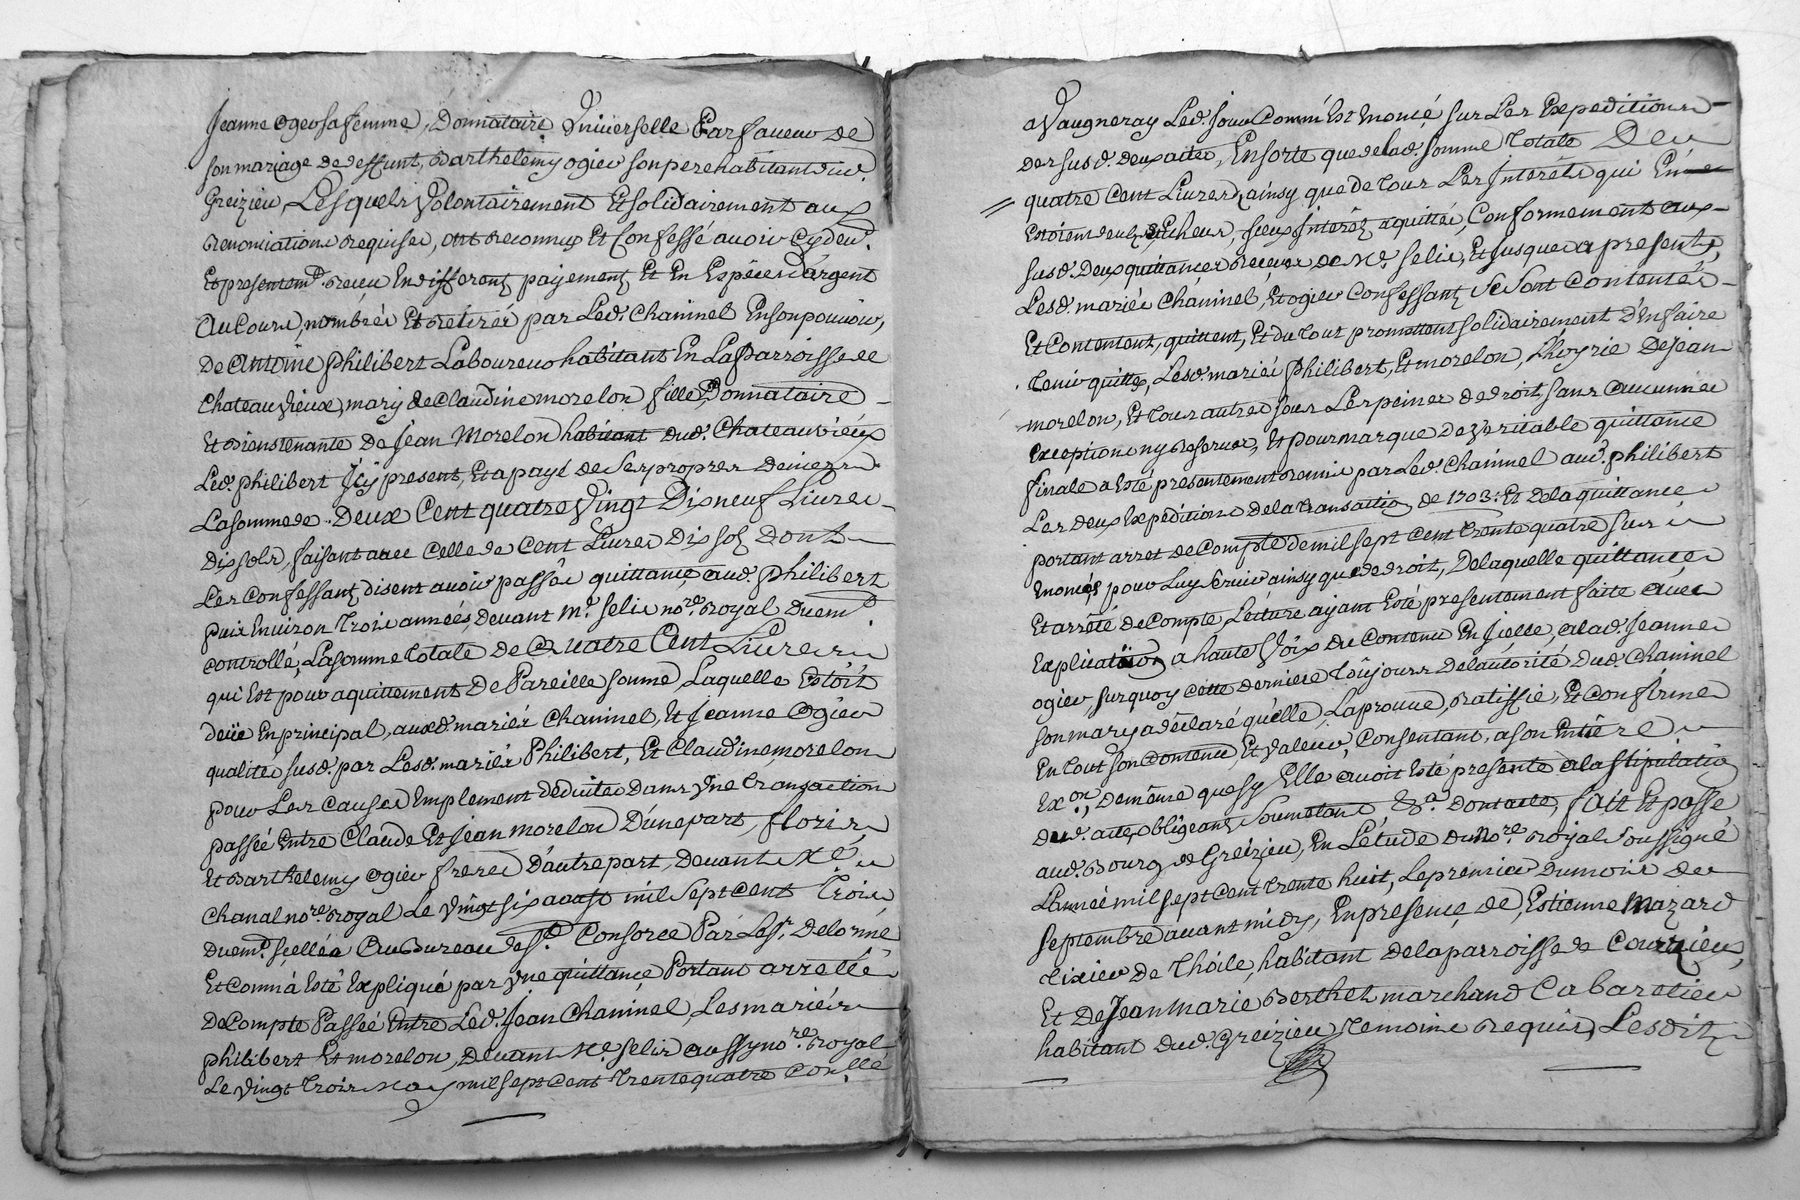 Jeanne Ogier sa femme, Donnataire Universelle Par faveur de
son mariage de deffunt, Barthelemy ogier son pere habitant dud.
Greizieu, Lesquels Volontairement Et solidairement aux
renonciations requises, ont reconnus Et Confessé avoir cydeu.
Et presentem.t receu En differents payements Et En Espèces d'argent
Au Cours, nombrée Et retirée par Led. Chaninel En son pouvoir,
De Antoine philibert Laboureur habitant En La Parroisse de
Chateauvieux, mary de Claudine morelon fille, Donnataire
Et Bienstenante De Jean Morelon habitant dud. Chateauvieux
Led. philibert Jcÿ present, Et a payé de Ses propres deniers
La somme de Deux Cent quatre Vingt Dix neuf Livres
Dix sols, faisant avec Celle de Cent Livres Dix sols dont
Les Confessants disent avoir passée quittance aud. philibert
puis Environ Trois années devant M.e selis no.re Royal duem.t
controllé, La somme totale de Quatre Cent Livres
qui Est pour aquittement De Pareille somme Laquelle Estoit
deüe En principal, auxd. mariés Chaninel, Et Jeanne Ogier
qualité susd. par Lesd. mariés Philibert, Et Claudine morelon
pour Les Causes Emplement déduites dans Une transaction
passée Entre Claude Et Jean morelon D'une part, floris
Et Barthelemy ogier freres D'autre part, devant M.e
Chanal no.re Royal Le Vingt six aoust mil sept cent Trois
duem.t scellée Au Bureau de S.t Consorce Par Le S.r Delorme
Et Comm'à Esté Expliqué par Une quittance Portant arresté
De Compte Passée Entre Led. Jean Chaninel, Les mariés
philibert Et morelon, Devant M.e selis aussy no.re Royal
Le Vingt Trois May mil sept cent Trente quatre con.llé
a Vaugneray Led. jour Comm'Est Enoncé sur Les Expeditions
des susd. deux actes, En sorte que de lad. somme Totale De
quatre Cent Livres, ainsy que de tous Les Interêts qui En
Estoient Interêts aquittés, Conformement aux
susd. Deux quittances Receues de M.e selis, Et Jusques a present,
Lesd. mariés Chaninel, Et ogier Confessants Se Sont Contentés
Et Contentent, quittent, Et du tout promettent solidairement D'En faire
tenir quittes, Lesd. mariés philibert, Et morelon, L'hoyrie De Jean
morelon, Et tous autres sous Les peines de droit, sans Aucunne
Exception ny Reserve, Et pour marque De Veritable quittance
finale a Esté presentement Remis par Led. Chaninel aud. philibert
Les deux Expeditions de la transaction de 1703. Et De la quittance
portant arret de Compte de mil sept cent trente quatre sus
Enoncés pour Luy servir ainsy que de droit, De laquelle quittance
Et arrêté de Compte, Lecture ayant Esté presentement faite avec
Explication a haute Voix du Contenu En Jcelle, a lad. Jeanne
ogier, sur quoy cette derniere toujours De l'autorité dud. Chaninel
son mary a déclaré qu'elle L'aprouve, ratiffie, Et Confirme
En tout son Contenu, Et Valeur, Consentant, a son Entiere
Ex.on, De même que sy Elle avoit Esté presente a la stipulation
dud. acte, obligeants, soumetant, &.a Dont acte, fait Et passé
aud. Bourg de Greizieu, En L'étude du No.re Royal soussigné
L'année mil sept cent Trente huit, Le premier du mois de
septembre avant midy, En presence de, Estienne Mazard
Tixier De Thoile, habitant De la parroisse de Courzieu,
Et De Jean Marie Berthet marchand Cabaretier
habitant dud. Greizieu, Temoins Requis, Lesdits